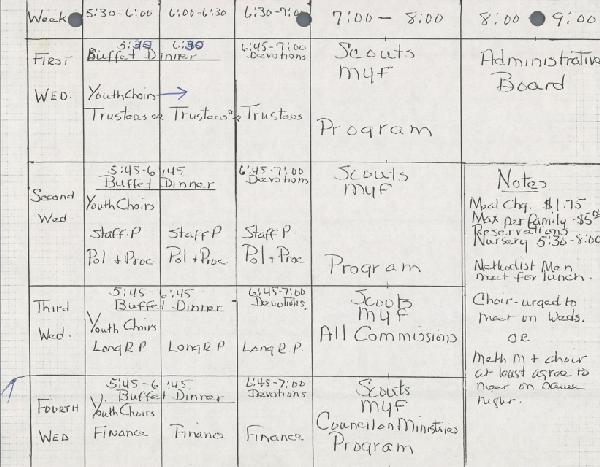 Week 5:30-6:00 6:00-6:30 6:30-7:00 7:00 - 8:00 8:00 9:00
First Wed.
5:30 6:30
Buffet Dinner
Youth Choirs
Trustees Trustees Trustees
6:45-7:00
Devotions
Scouts
MYF
Program
Administrative
Board
Second Wed
5:45-6:45
Buffet Dinner
Youth Choirs
Staff P Staff P Staff P
Pol + Proc Pol + Proc Pol + Proc
6:45-7:00
Devotions
Scouts
MYF
Program
Notes
Meal Chg. $1.75
Max per family -
Reservations
Nursery 5:30-8:00
Methodist Men
meet for lunch.
Choir-urged to
meet on Weds.
OR
Meth M + choir
at least agree to
meet on same
night.
Third Wed.
5:45 6:45
Buffet Dinner
Youth Choirs
Long R P Long R P Long R P
6:45-7:00
Devotions
Scouts
MYF
All Commissions
Fourth Wed
5:45-6:45
Buffet Dinner
Youth Choirs
Finance Finance Finance
6:45-7:00
Devotions
Scouts
MYF
Council on Ministries
Program